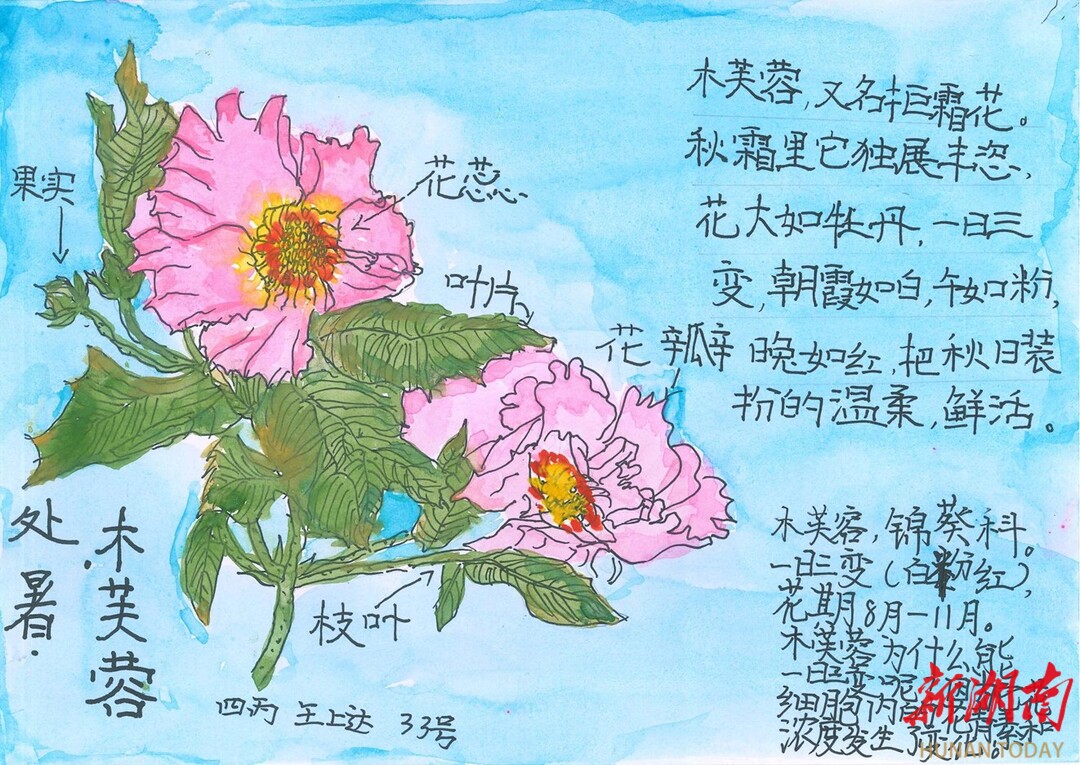 木芙蓉,又名拒霜花。
秋霜里它独展丰姿,
花大如牡丹,一日三
变,朝霞如白,午如粉,
晚如红,把秋日装
扮的温柔,鲜活。
果实
花蕊
叶片
花瓣
枝叶
处暑.
木芙蓉
四丙 王上达 33号
木芙容,锦葵科。
一日三变(白粉红),
花期8月—11月。
木芙蓉为什么能
一日三变呢
细胞内 青素和
浓度发生了
新湖南
HUNAN TODAY